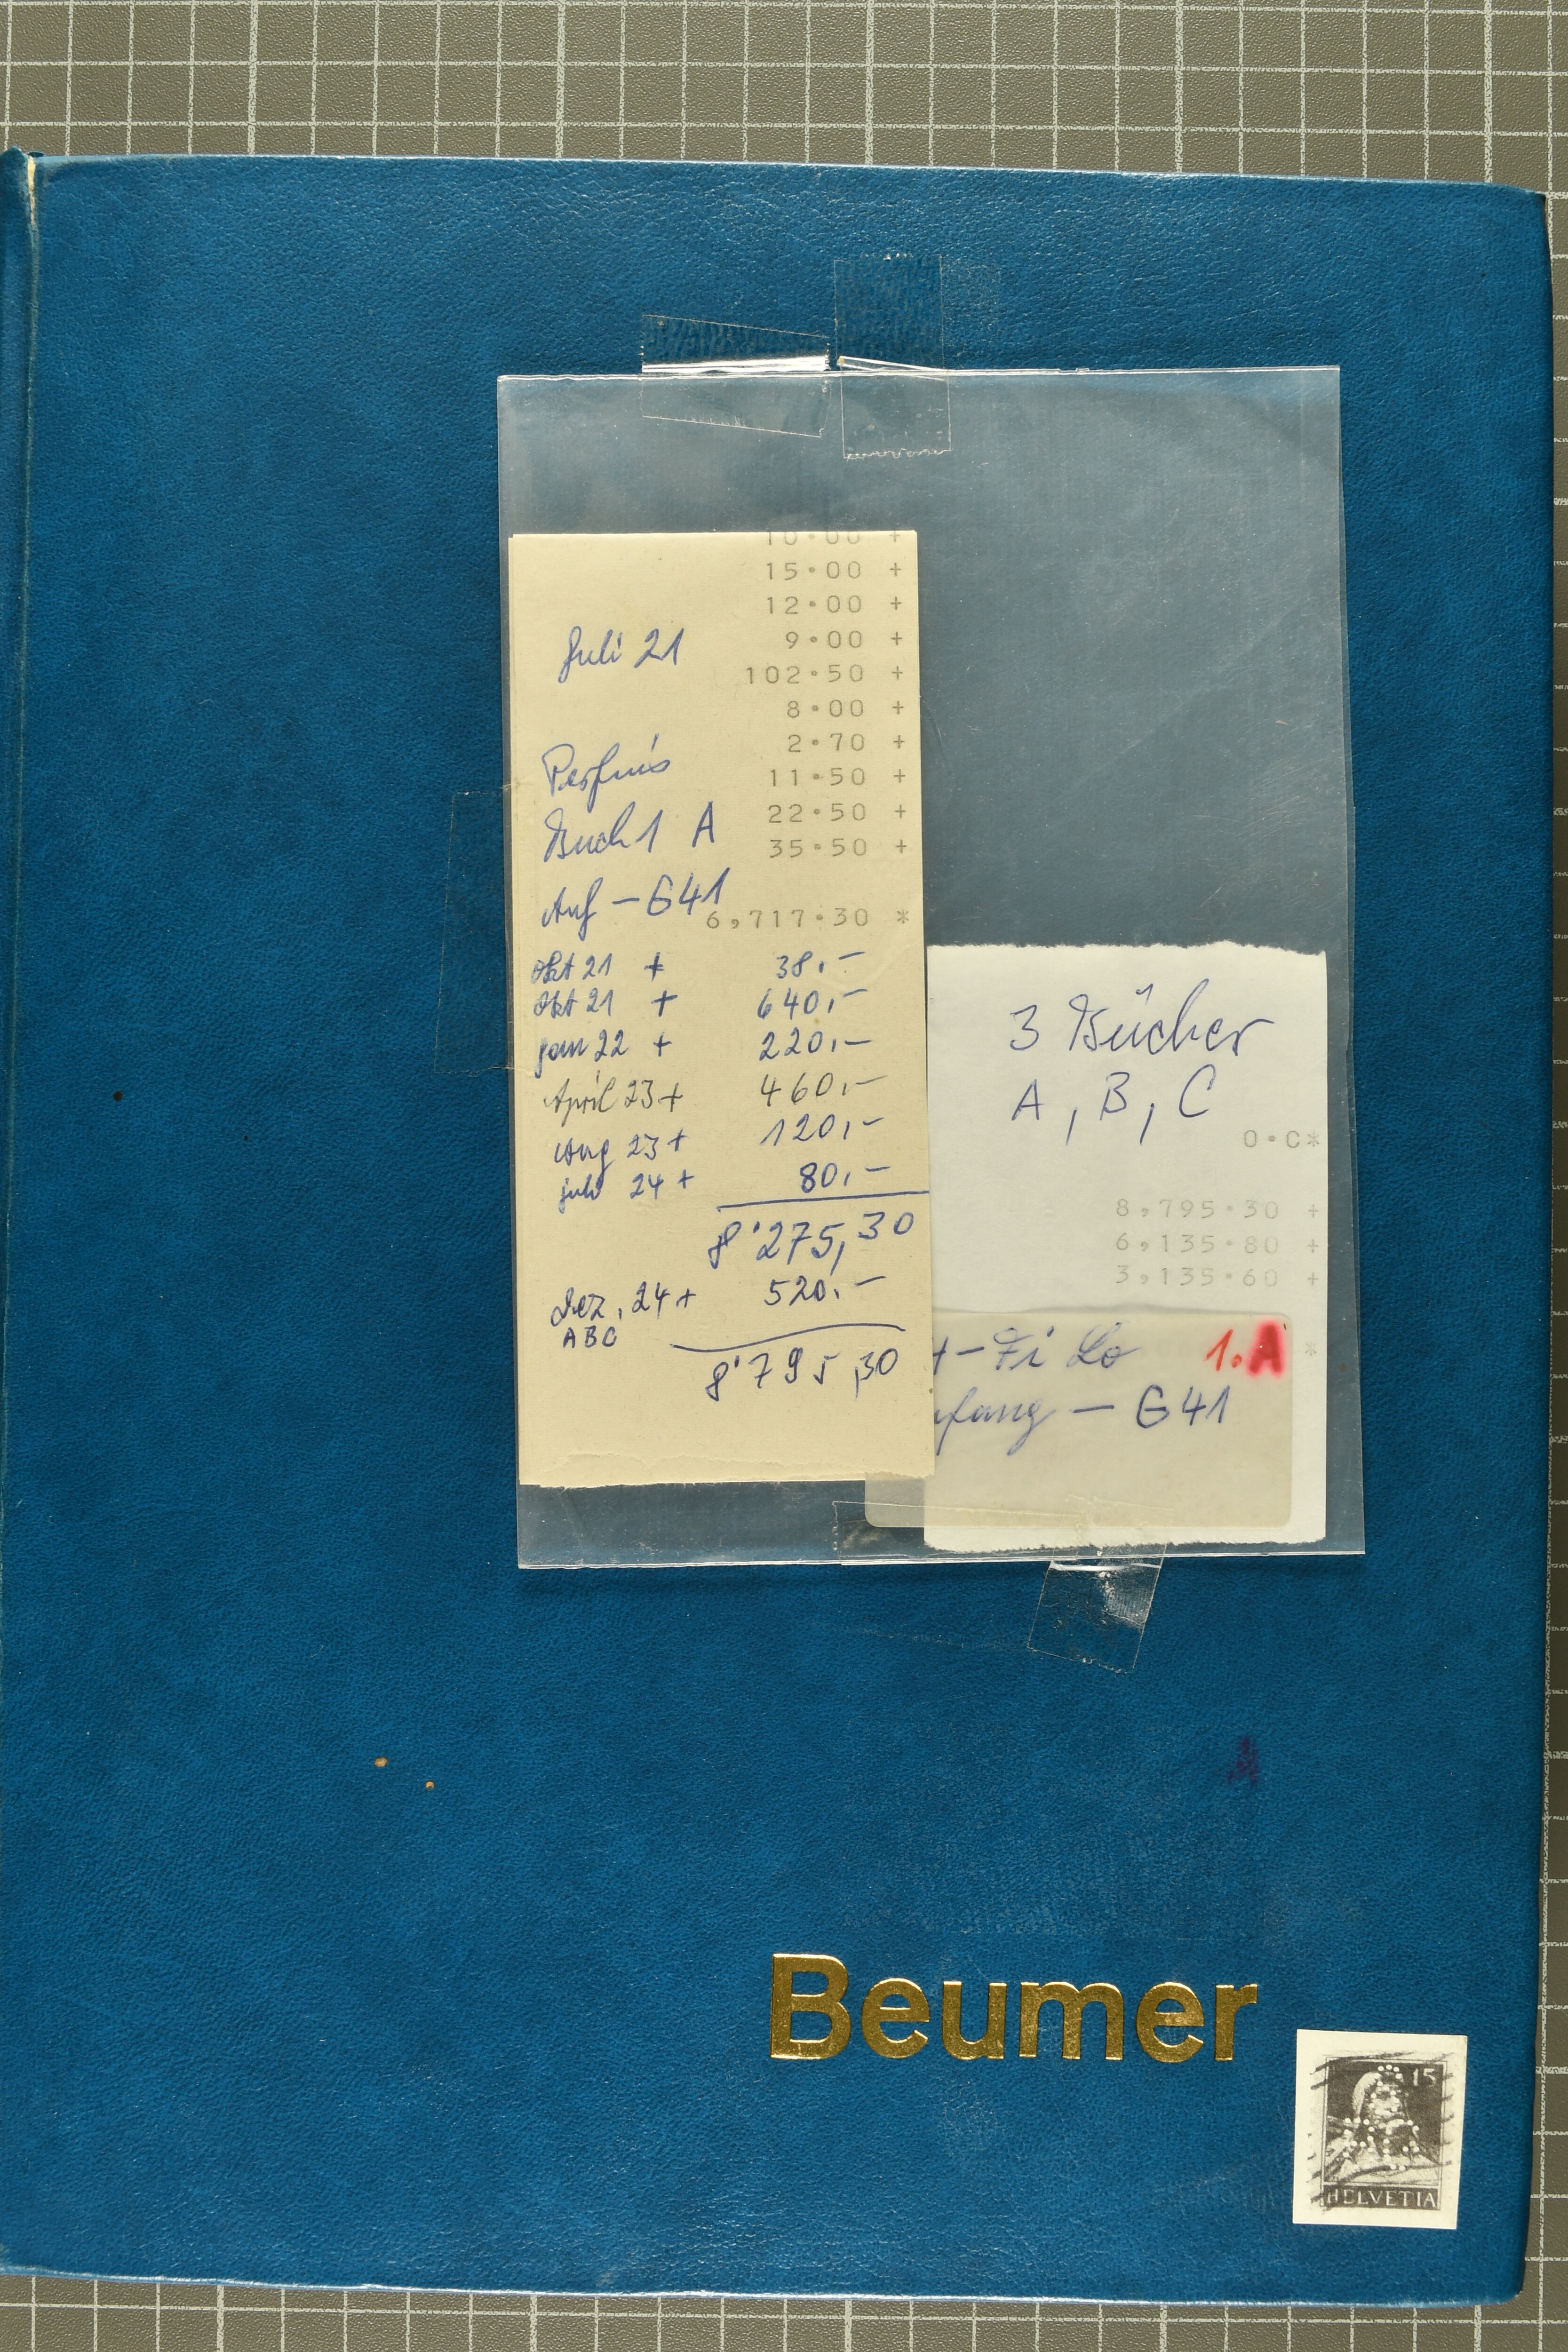 10·00 +
15·00 +
12·00 +
Juli 21 9·00 +
102·50 +
8·00 +
2·70 +
Perfins 11·50 +
22·50 +
Buch 1 A 35·50 +
Anf – G41
6,717·30 *
Okt 21 + 38,–
Okt 21 + 640,–
Jan 22 + 220,–
April 23 + 460,–
Aug 23 + 120,–
Juli 24 + 80,–
8'275,30
Dez. 24 + 520,–
ABC
8'795,30
3 Bücher
A, B, C
0·C*
8,795·30 +
6,135·80 +
3,135·60 +
1.A *
– G41
Beumer
15
HELVETIA